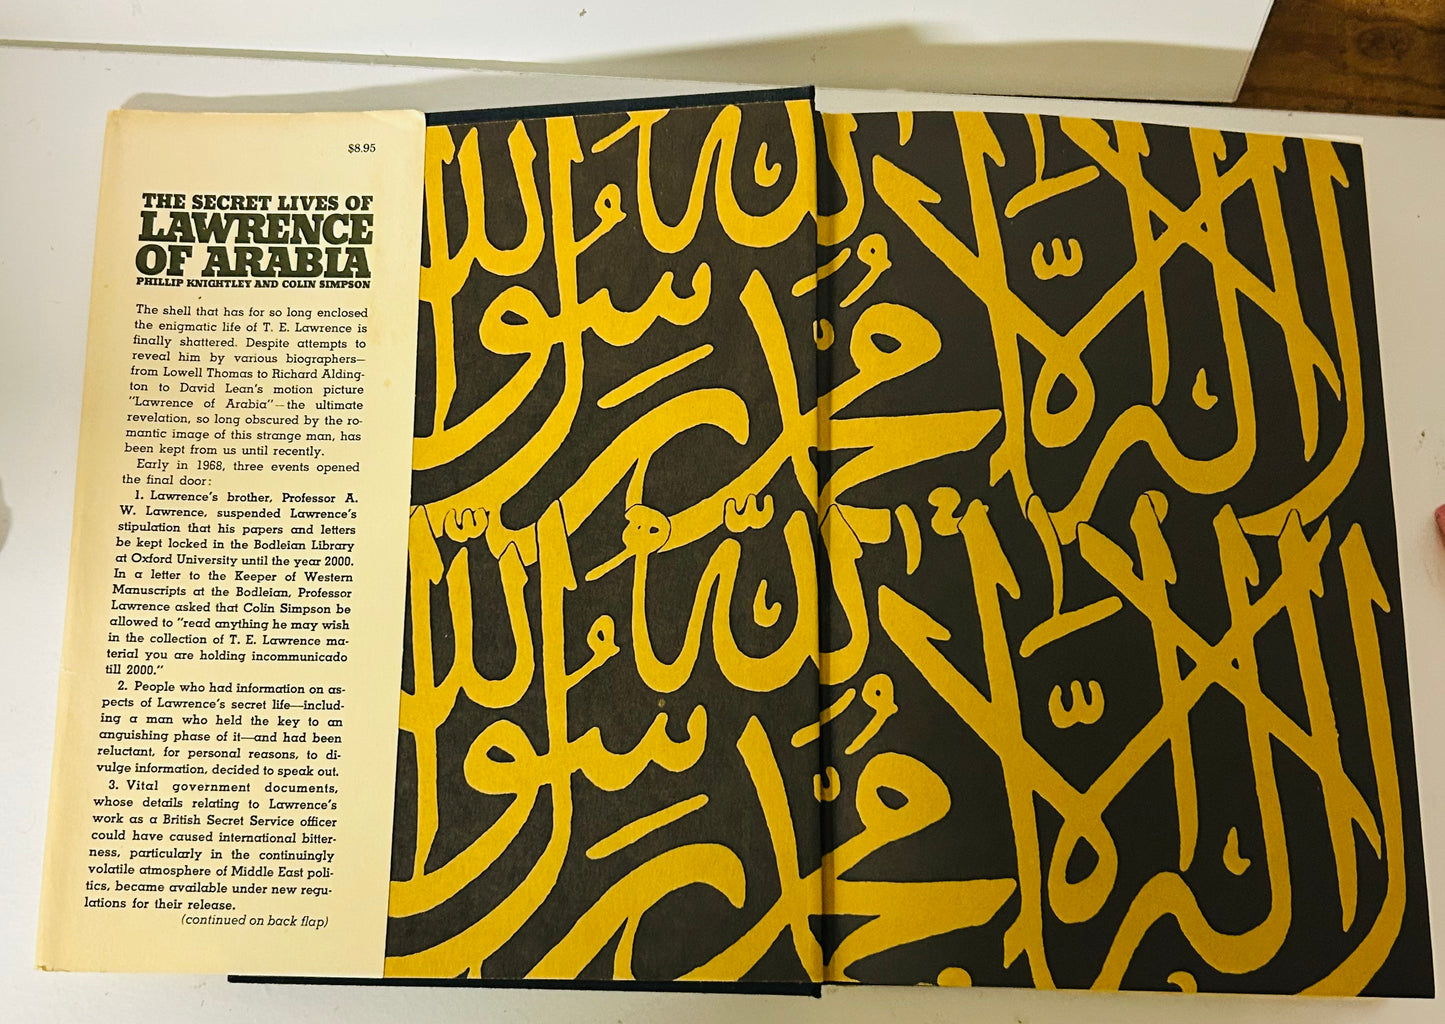 $8.95
THE SECRET LIVES OF
LAWRENCE
OF ARABIA
PHILLIP KNIGHTLEY AND COLIN SIMPSON
The shell that has for so long enclosed
the enigmatic life of T. E. Lawrence is
finally shattered. Despite attempts to
reveal him by various biographers—
from Lowell Thomas to Richard Alding-
ton to David Lean's motion picture
"Lawrence of Arabia"—the ultimate
revelation, so long obscured by the ro-
mantic image of this strange man, has
been kept from us until recently.
Early in 1968, three events opened
the final door:
1. Lawrence's brother, Professor A.
W. Lawrence, suspended Lawrence's
stipulation that his papers and letters
be kept locked in the Bodleian Library
at Oxford University until the year 2000.
In a letter to the Keeper of Western
Manuscripts at the Bodleian, Professor
Lawrence asked that Colin Simpson be
allowed to "read anything he may wish
in the collection of T. E. Lawrence ma-
terial you are holding incommunicado
till 2000."
2. People who had information on as-
pects of Lawrence's secret life—includ-
ing a man who held the key to an
anguishing phase of it—and had been
reluctant, for personal reasons, to di-
vulge information, decided to speak out.
3. Vital government documents,
whose details relating to Lawrence's
work as a British Secret Service officer
could have caused international bitter-
ness, particularly in the continuingly
volatile atmosphere of Middle East poli-
tics, became available under new regu-
lations for their release.
(continued on back flap)
لا إله إلا الله محمد رسول الله
لا إله إلا الله محمد رسول الله